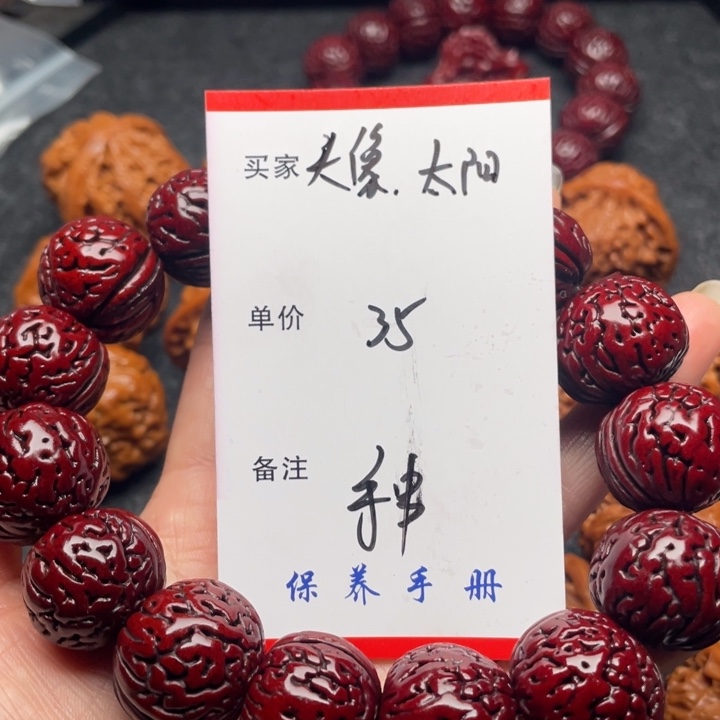 买家 头像. 太阳
单价 35
备注 手串
保养手册